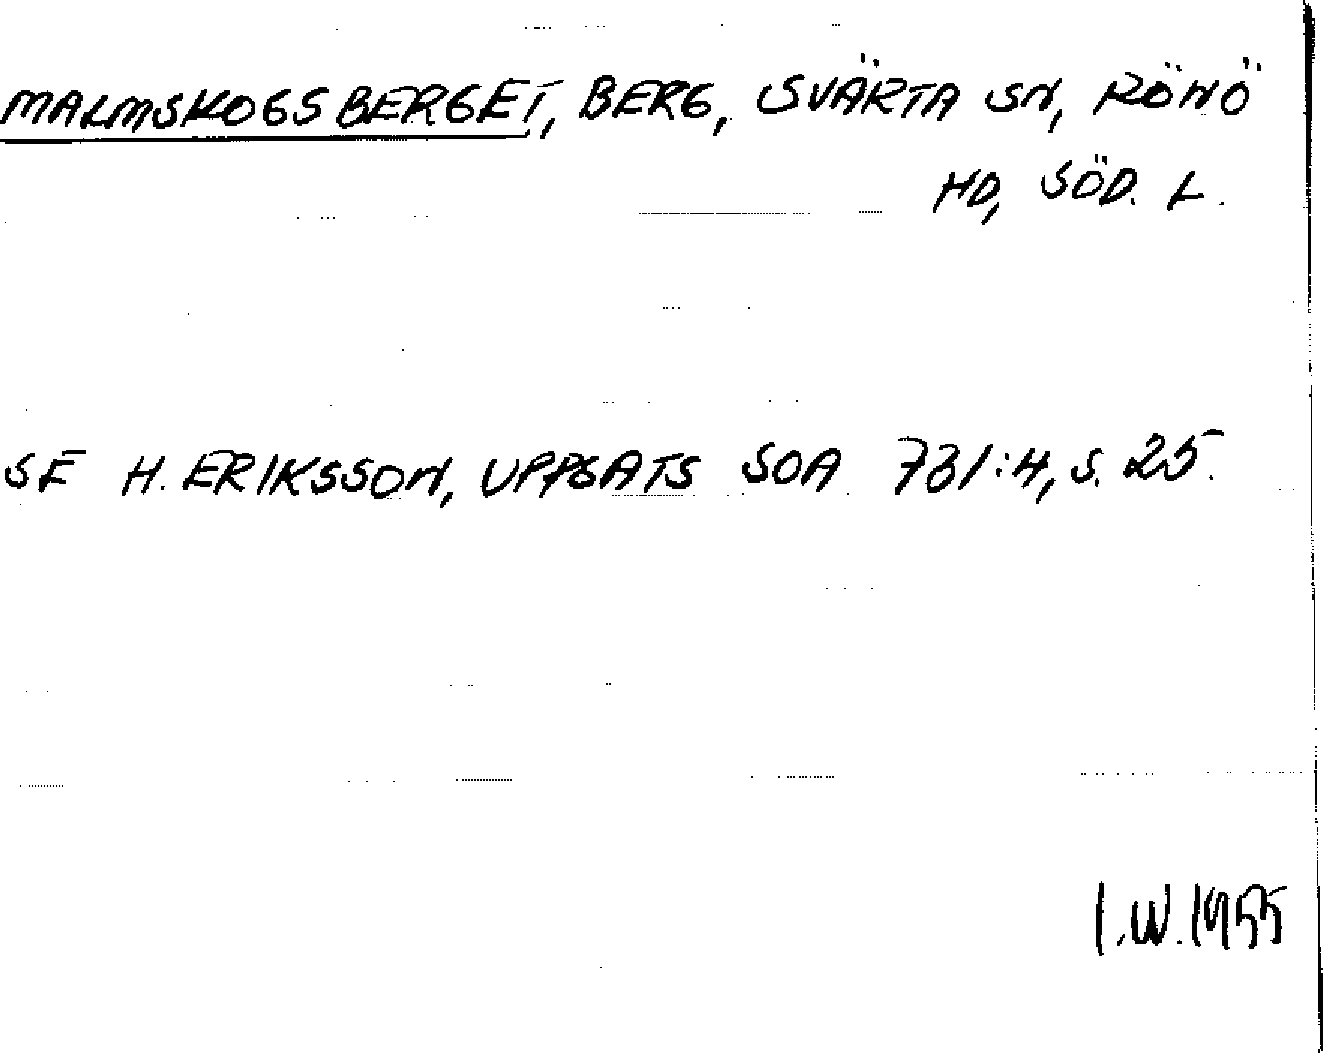 MALMSKOGSBERGET, BERG, SVÄRTA SN, RÖNÖ
HD, SÖD. L.
SE H. ERIKSSON, UPPSATS SOA 731:4, S. 25.
I.W. 1955